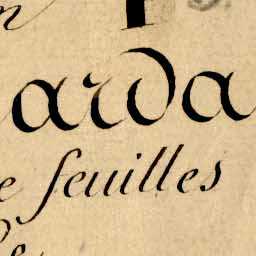 arda
e feuilles